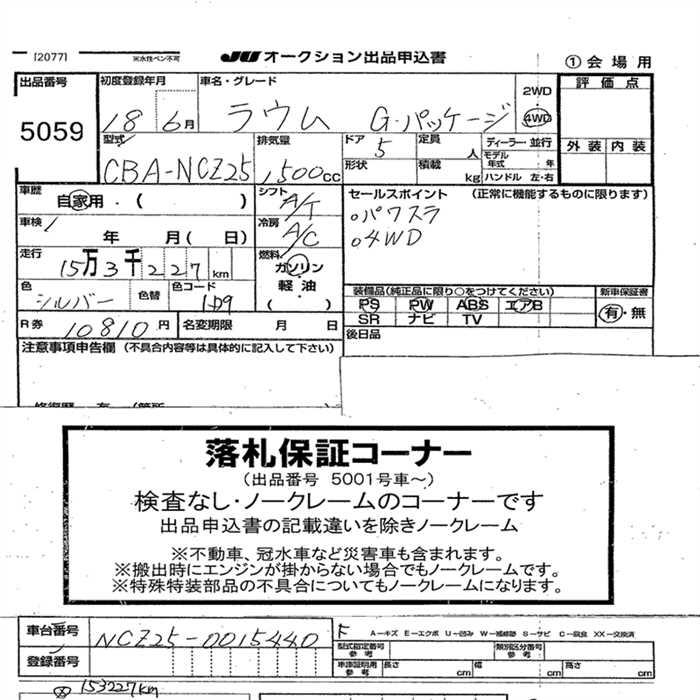 [2077] ※水性ペン不可 JU オークション出品申込書 ①会場用
出品番号 5059
初度登録年月 18 6月
車名・グレード ラウム G・パッケージ
2WD 4WD
評価点
外装 内装
型式 CBA-NCZ25
排気量 1,500cc
ドア 5
定員 人
ディーラー・並行
モデル年式 年
形状
積載 kg
ハンドル 左・右
車歴 自家用・( )
シフト A/T
車検 年 月(日)
冷房 A/C
走行 15万3千227km
燃料 ガソリン 軽油 ( )
色 シルバー
色替
色コード 1D9
R券 10810円
名変期限 月 日
セールスポイント (正常に機能するものに限ります)
○パワスラ
○4WD
装備品(純正品に限り○をつけてください) 新車保証書
PS PW ABS エアB 有・無
SR ナビ TV
後日品
注意事項申告欄(不具合内容等は具体的に記入して下さい)
落札保証コーナー
(出品番号 5001号車~)
検査なし・ノークレームのコーナーです
出品申込書の記載違いを除きノークレーム
※不動車、冠水車など災害車も含まれます。
※搬出時にエンジンが掛からない場合でもノークレームです。
※特殊特装部品の不具合についてもノークレームになります。
車台番号 NCZ25-0015440
A-キズ E-エクボ U-凹み W-補修跡 S-サビ C-腐食 XX-交換済
登録番号
型式指定番号 参考
類別区分番号 参考
車庫証明用 参考 長さ cm 幅 cm 高さ cm
※153227km